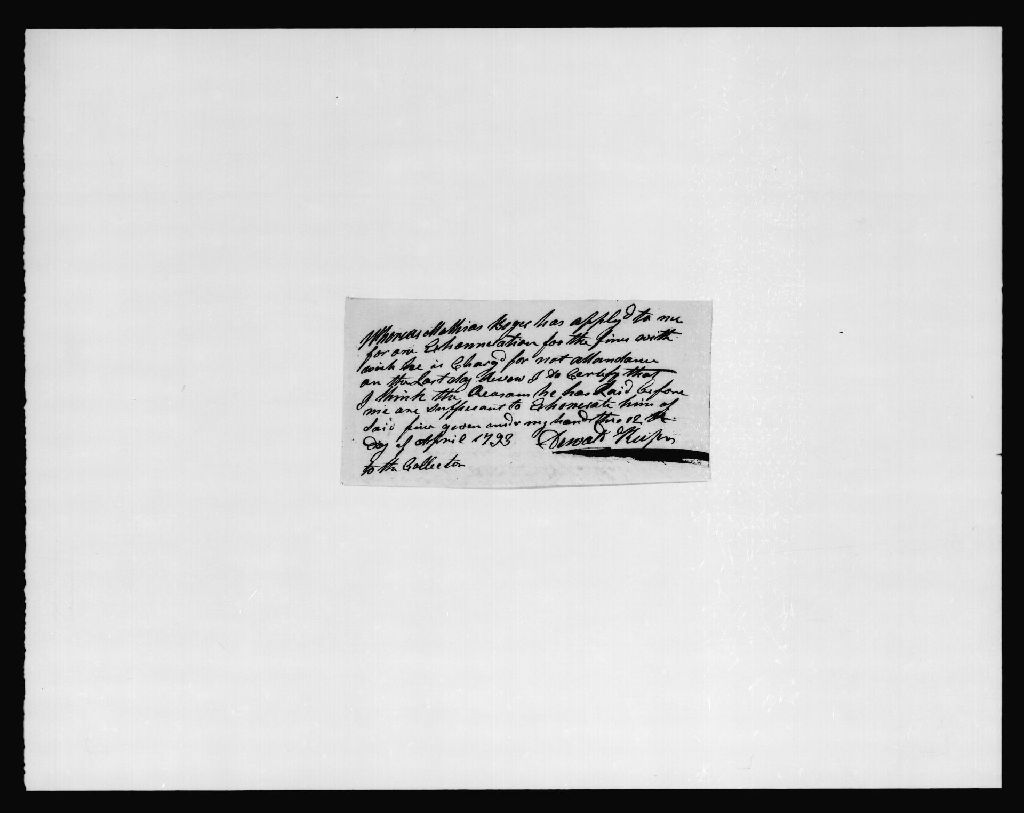 Whereas Mathias Boger has apply'd to me
for an Exhonneration for the fines with
wich he is Charg'd for not attandance
on the last day Know I Do Certify that
I think the Reasons he has Laid before
me are Suffisant to Exhonerate him of
Said fine given under my hand this 12 th
Day of April 1793 Dewalt
to the Collector